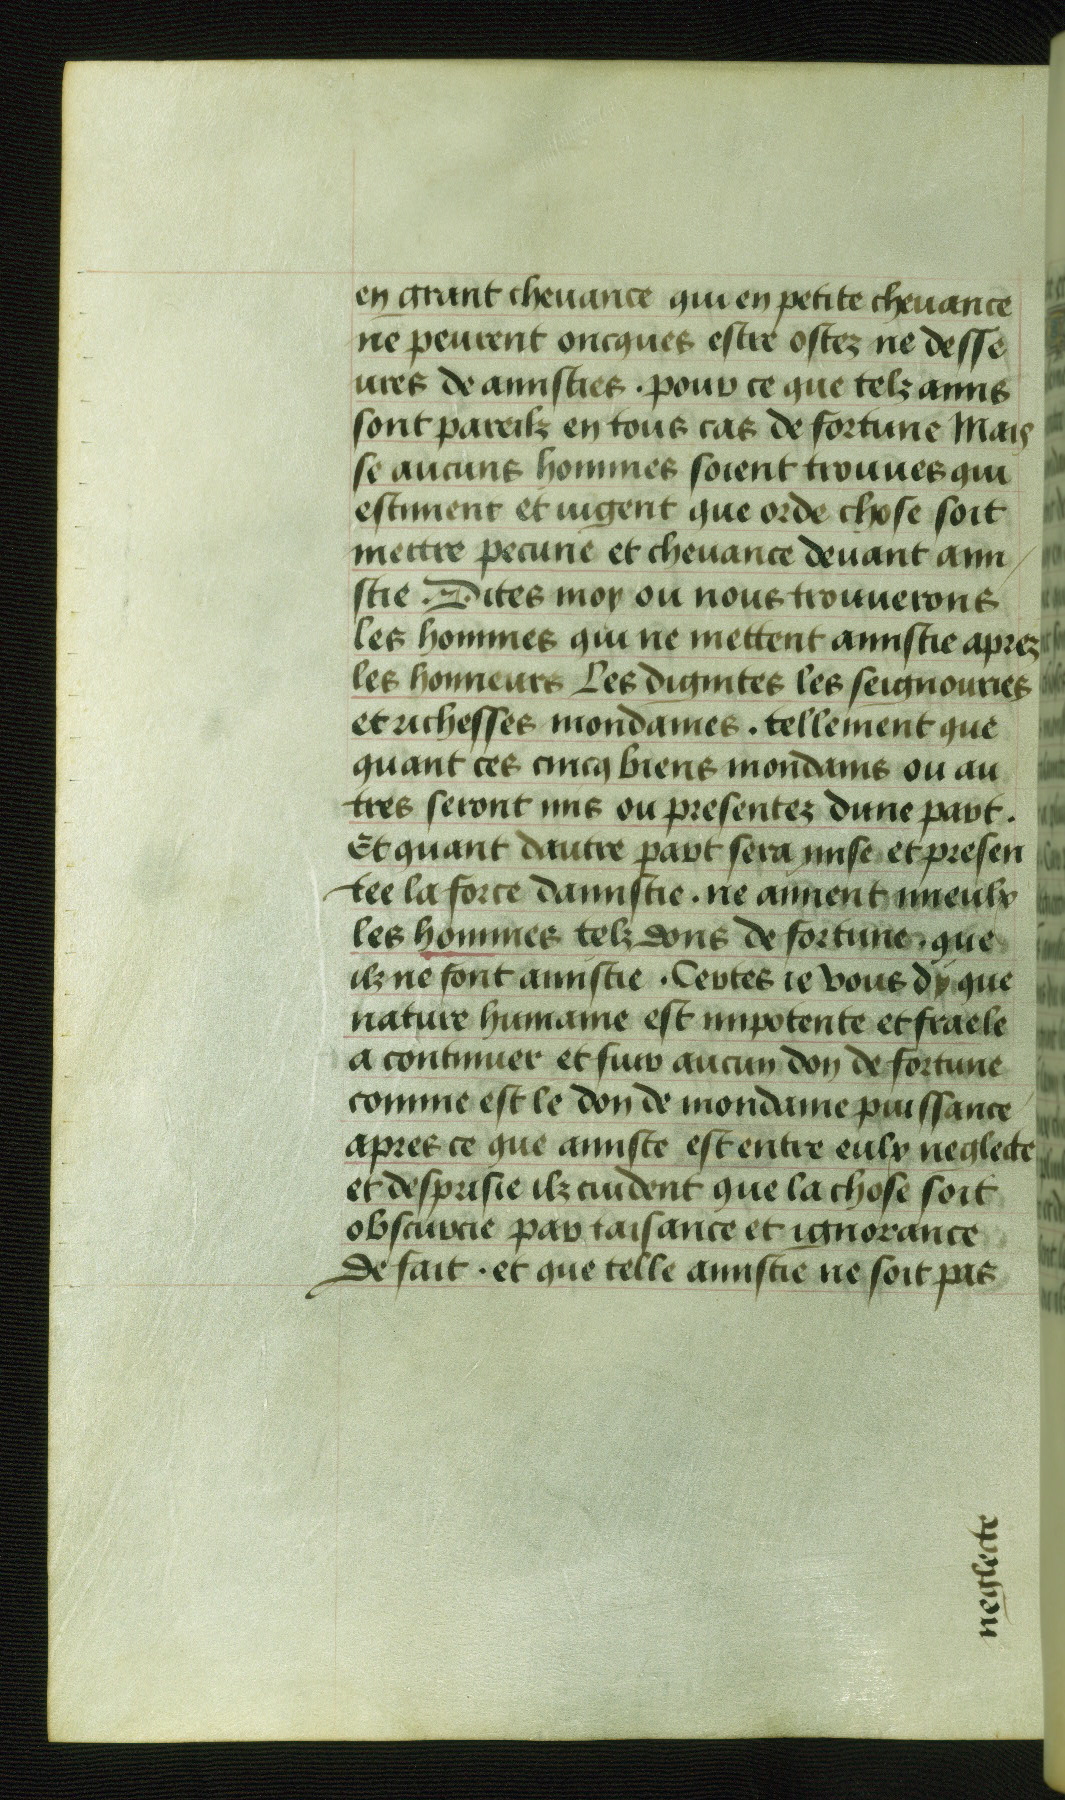 en grant cheuance qui en petite cheuance
ne peurent oncques estre ostez ne desse
ures de amisties . pour ce que telz amis
sont pareilz en tous cas de fortune Mais
se aucuns hommes soient trouues qui
estiment et iugent que orde chose soit
mettre pecune et cheuance deuant ami
stie . Dites moy ou nous trouuerons
les hommes qui ne mettent amistie aprez
les honneurs Les dignites les seignouries
et richesses mondaines . tellement que
quant ces cincq biens mondains ou au
tres seront mis ou presentez dune part .
Et quant dautre part sera mise et presen
tee la force damistie . ne aiment mieulx
les hommes telz dons de fortune . que
ilz ne font amistie . Certes ie vous dy que
nature humaine est impotente et fraele
a continuer et suir aucun don de fortune
comme est le don de mondaine puissance
apres ce que amiste est entre eulx neglecte
et desprisie ilz cuident que la chose soit
obscurcie par taisance et ignorance
de fait . et que telle amistie ne soit pas
neglecte